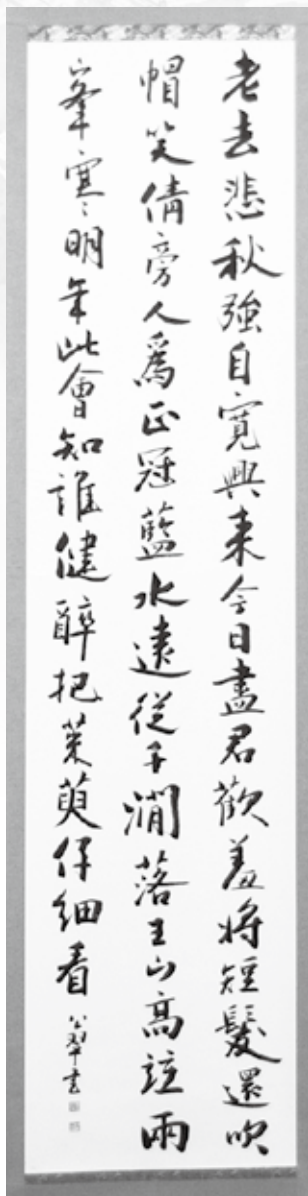 老去悲秋強自寛興来今日盡君歡羞将短髮還吹
帽笑倩旁人爲正冠藍水遠従千澗落玉山高竝兩
峯寒明年此會知誰健醉把茱萸仔細看 翠書